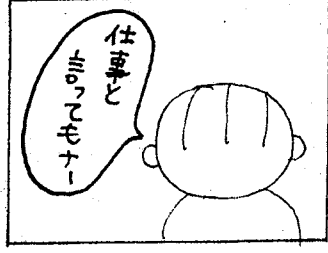 仕事と
言ってもナー